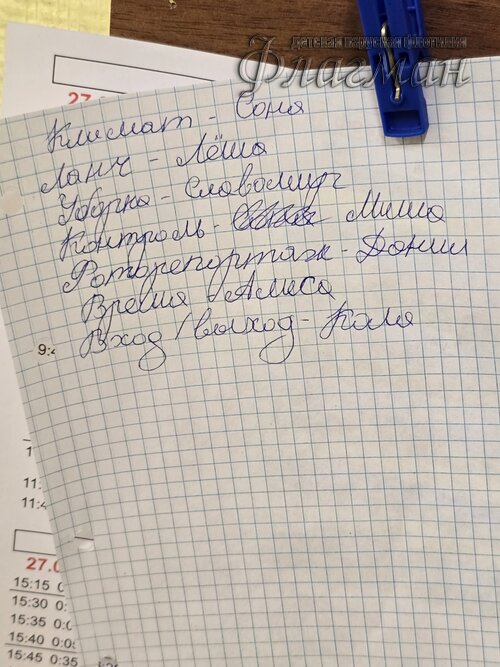 детская парусная флотилия
Флагман
27.
Климат - Соня
Ланч - Лёша
Уборка - Славомир
Контроль - Миша
Фоторепортаж - Данил
Время - Алиса
Вход/выход - Коля
9:4
11:
11:4
27.0
15:15 0
15:30 0:
15:35 0:0
15:40 0:05
15:45 0:35